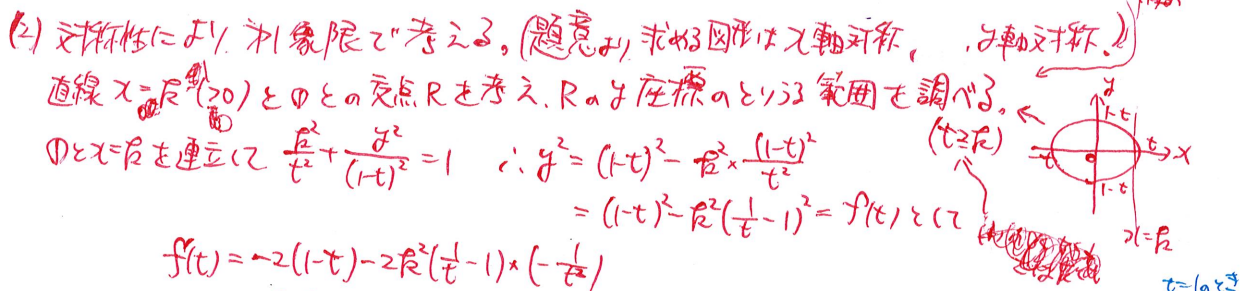 (2) 対称性により、第1象限で考える。(題意より、求める図形はx軸対称、y軸対称。)
直線 x=k(>0) と①との交点Rを考え、Rのy座標のとりうる範囲を調べる。
(t≧k)
①とx=kを連立して k²/t² + y²/(1-t)² = 1 ∴ y² = (1-t)² - k² × (1-t)²/t²
= (1-t)² - k²(1/t - 1)² = f(t) として
f'(t) = -2(1-t) - 2k²(1/t - 1) × (-1/t²)
y
1-t
-t
0
t
x
1-t
x=k
t=1のとき